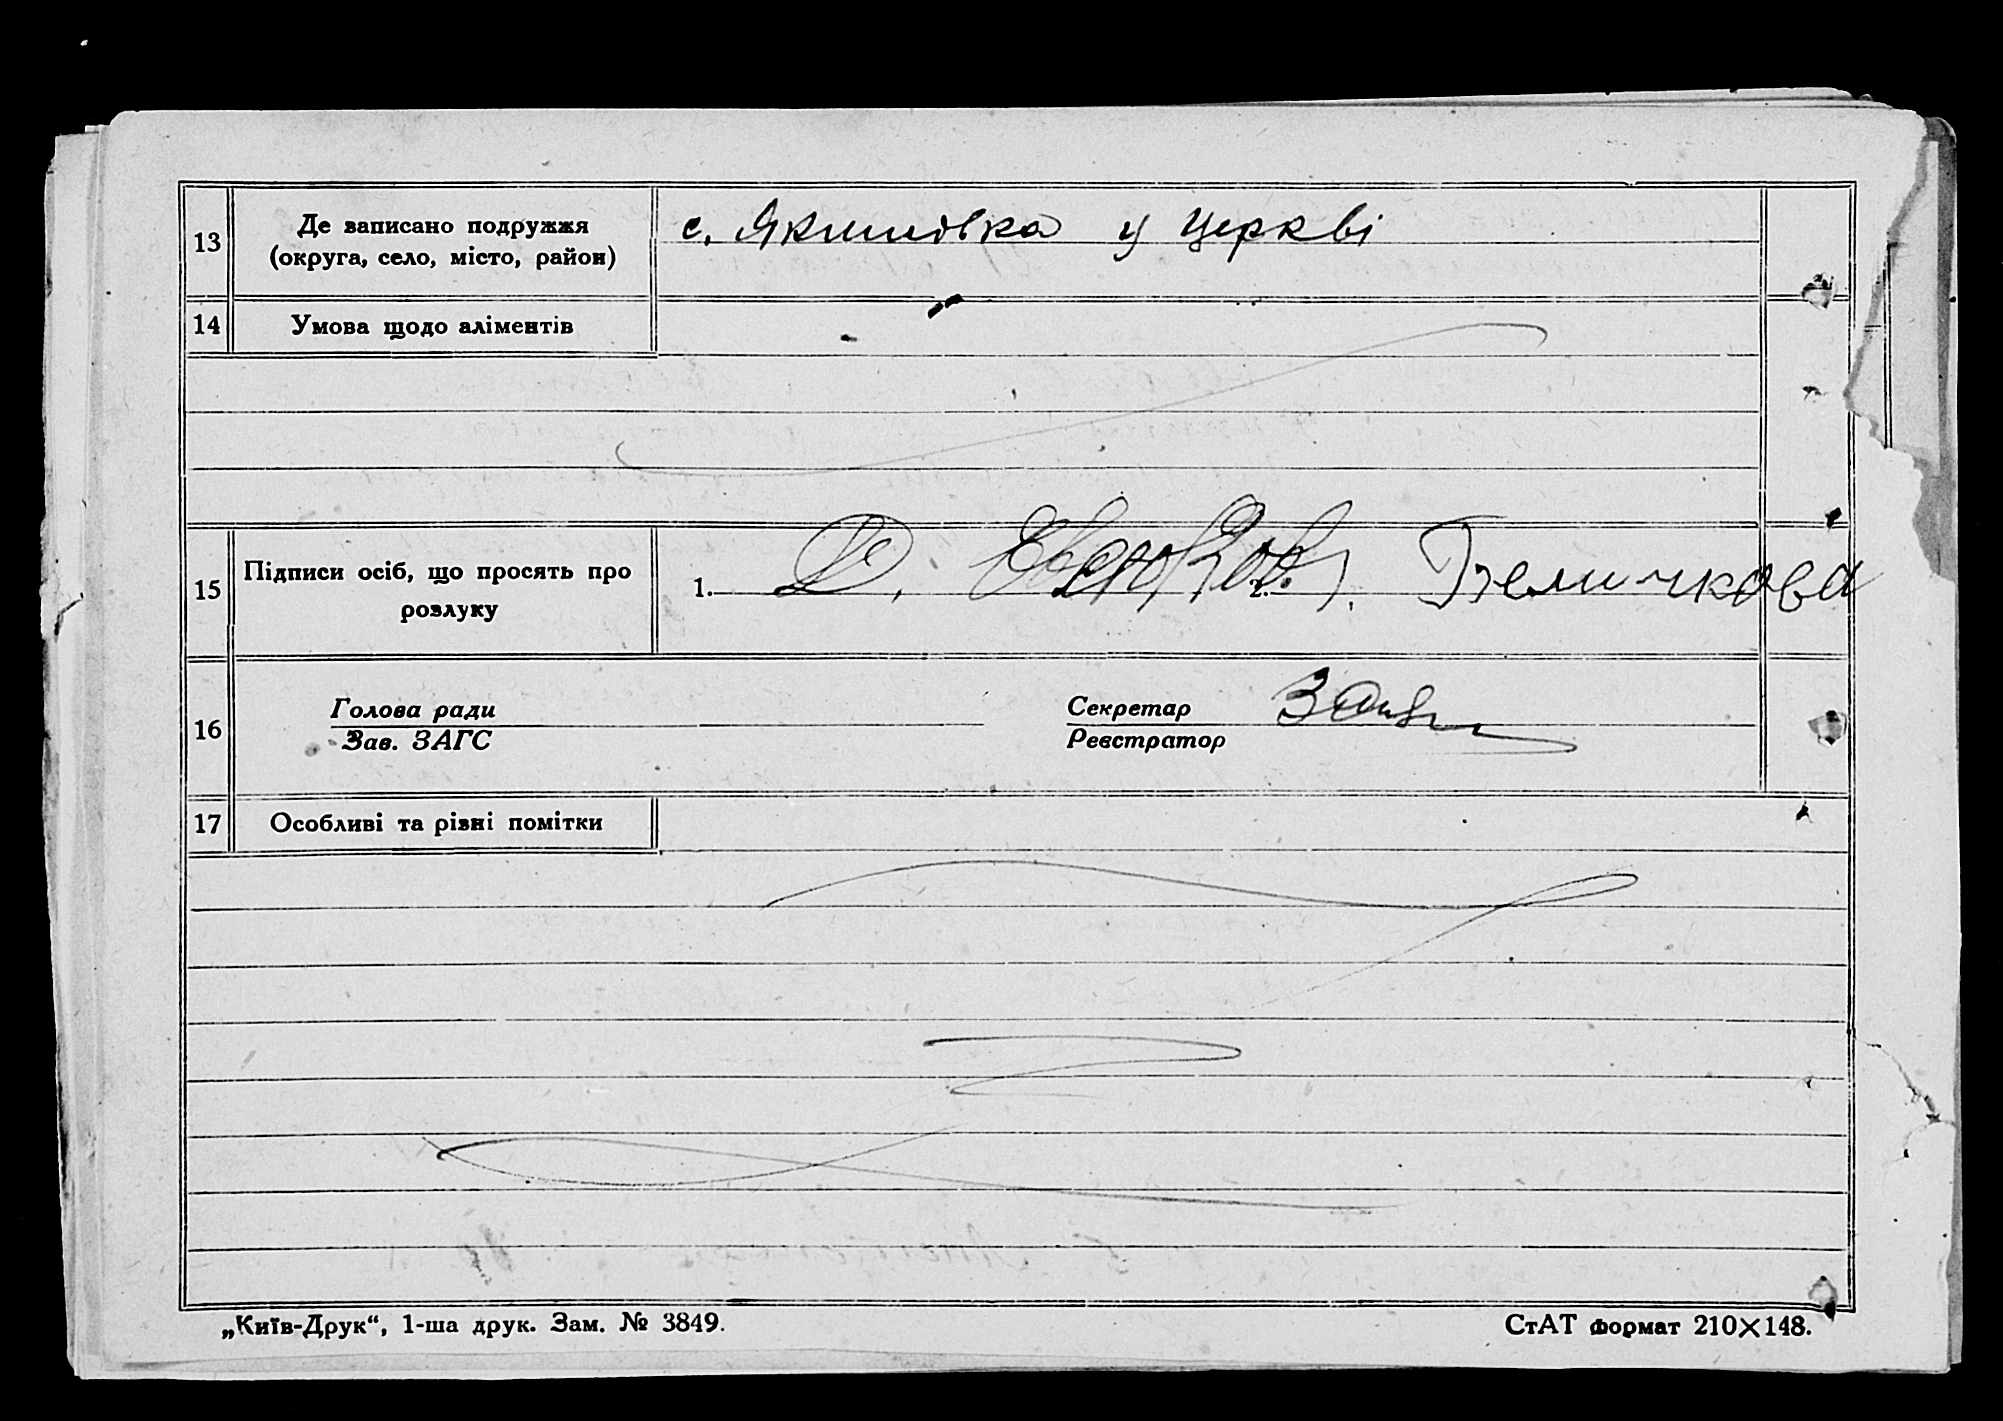 13 Де записано подружжя
(округа, село, місто, район)
с. Якимовка у Церкві
14 Умова щодо аліментів
15 Підписи осіб, що просять про
розлуку
1. Д. Евсюков 2. Величкова
16 Голова ради
Зав. ЗАГС
Секретар
Реєстратор
17 Особливі та різні помітки
„Київ-Друк“, 1-ша друк. Зам. № 3849.
СтАТ формат 210×148.